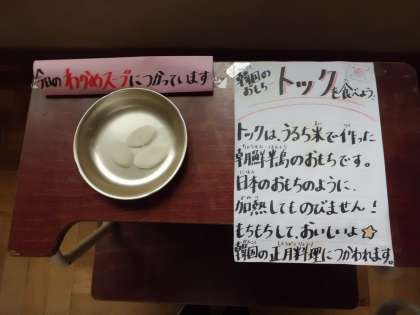 今日のわかめスープにつかっています
韓国の
おもち トックを食べよう。
トックは、うるち米で作った
朝鮮半島のおもちです。
日本のおもちのように、
加熱してものびません！
もちもちして、おいしいよ☆
韓国の正月料理につかわれます。